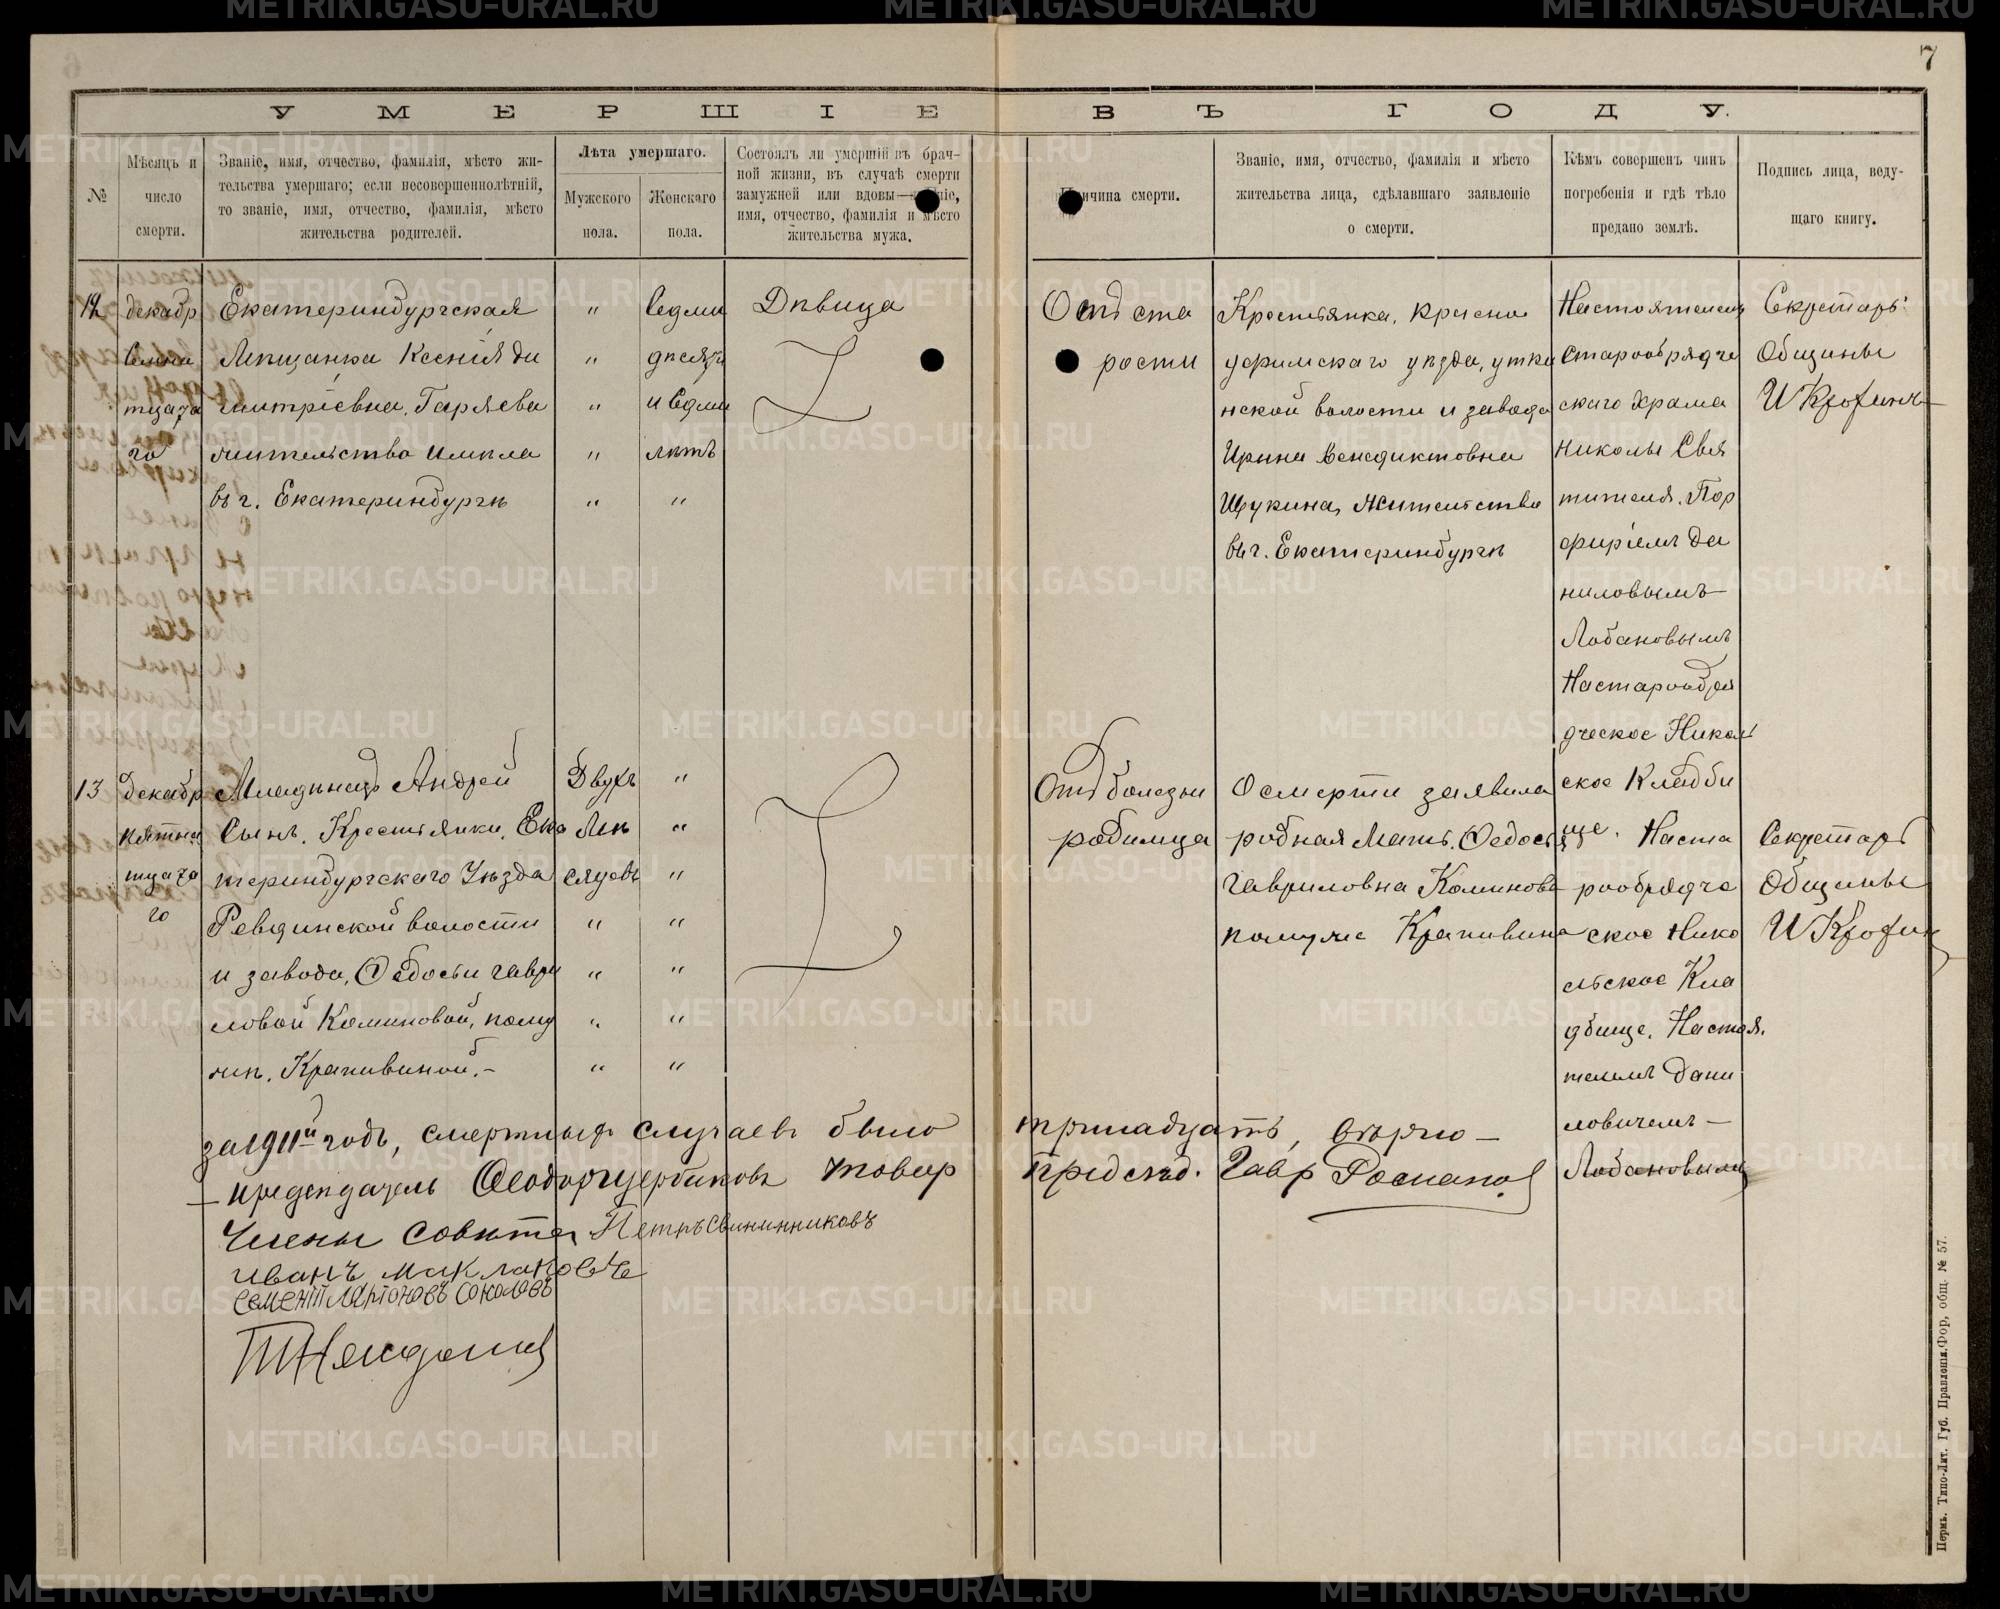 7
УМЕРШІЕ ВЪ ГОДУ.
№
Мѣсяцъ и
число
смерти.
Званіе, имя, отчество, фамилія, мѣсто жи-
тельства умершаго; если несовершеннолѣтній,
то званіе, имя, отчество, фамилія, мѣсто
жительства родителей.
Лѣта умершаго.
Мужского
пола.
Женскаго
пола.
Состоялъ ли умершій въ брач-
ной жизни, въ случаѣ смерти
замужней или вдовы—
имя, отчество, фамилія и мѣсто
жительства мужа.
смерти.
Званіе, имя, отчество, фамилія и мѣсто
жительства лица, сдѣлавшаго заявленіе
о смерти.
Кѣмъ совершенъ чинъ
погребенія и гдѣ тѣло
предано землѣ.
Подпись лица, веду-
щаго книгу.
12
декабр
тцата
го
Екатеринбургская
Мѣщанка Ксенія Ди
митріевна, Гаряева
жительство имѣла
въ г. Екатеринбургѣ
"
"
"
"
"
Седми
десяти
и Седми
лѣтъ
"
Дѣвица
Отъ ста
рости
Крестьянка, красно
уфимскаго уѣзда, утки
нской волости и завода
Ирина Венедиктовна
Щукина, Жительство
въ г. Екатеринбургѣ
Настоятелемъ
Старообрядче
скаго Храма
Николы Свя
тителя. Пор
фиріемъ Да
ниловымъ
Лобановымъ
На старообря
дческое Николь
ское Кладби
ще.
Секретарь
Общины
И Крофинъ
13
декабр
пятна
тцата
го
Младенецъ Андрей
Сынъ, Крестьянки, Ека
теринбургскаго Уѣзда
Ревдинской волости
и завода, Ѳедосьи гаври
ловой Колиновой, полу
чин. Крапивиной.-
Двухъ
Мѣ
сяцевъ
"
"
"
"
"
"
"
"
"
"
"
Отъ болезни
родимца
О смерти заявила
родная Мать, Ѳедосья
гавриловна Колинова
получае Крапивина
На ста
рообрядче
ское Нико
льское Кла
дбище. Настоя.
телемъ Дани
ловичемъ —
Лобановымъ
Секретарь
Общины
И Крофин
за 1911й годъ, смертныхъ случаевъ было тринадцать, вѣрно —
— председатель Ѳеодоръ Щербаковъ Товар Предсѣд. Гавр
Члены совѣта Петръ Свининниковъ
иванъ Маклаковъ
Семенъ Ларионовъ Соколовъ
Пермь. Типо-Лит. Губ. Правленія. Фор, общ. № 57.
METRIKI.GASO-URAL.RU